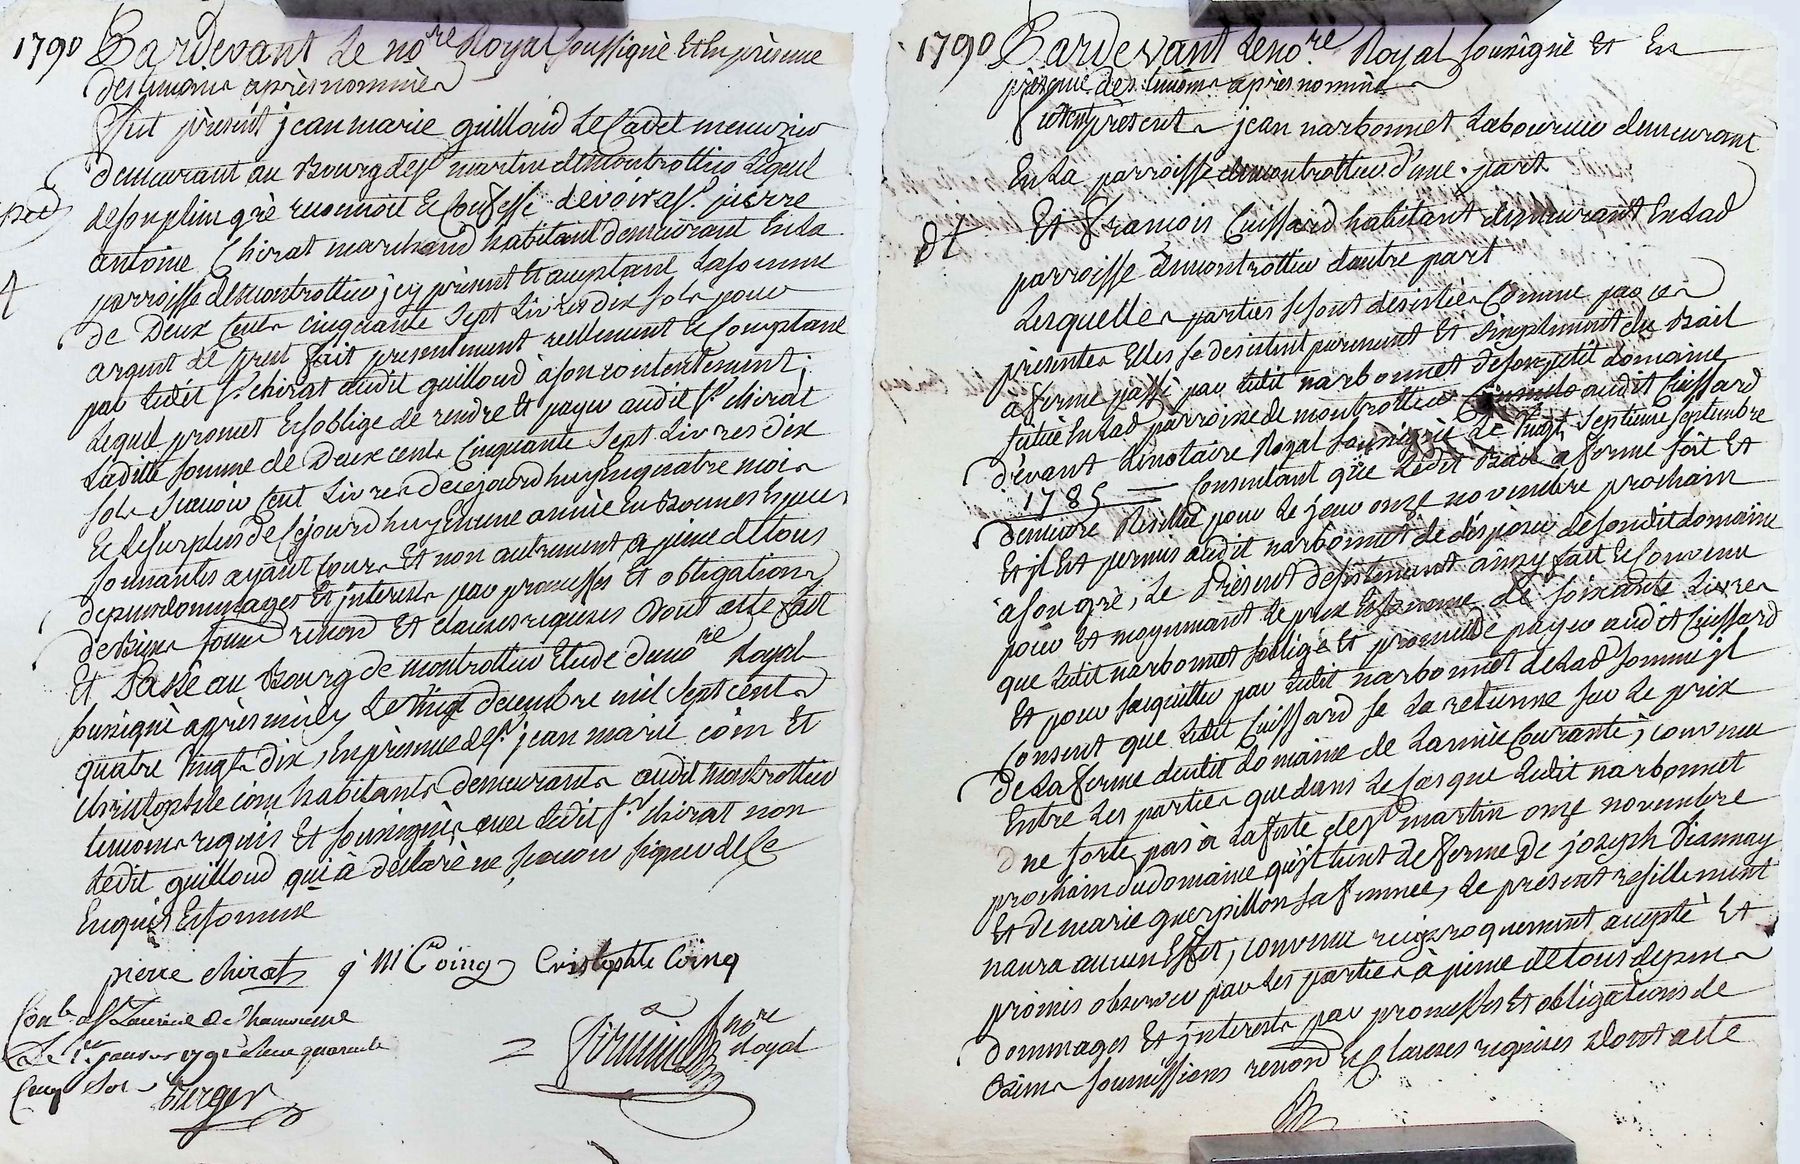 1790 Pardevant Le no.re Royal soussigné Et En présence
des temoins après nommés
fut présent jean marie guilloud Le Cadet menuzier
demeurant au Bourg de st martin de montrottier Lequel
de son plein gré reconnoit & Confesse devoir a sr. pierre
antoine Chirat marchand habitant demeurant En La
parroisse de montrottier icy présent Et acceptant La somme
de Deux Cents cinquante Sept Livres dix sols pour
argent de prest fait presentement reellement & Comptant
par Ledit sr. chirat audit guilloud à son contentement ;
Lequel promet Et s'oblige de rendre Et payer audit sr. chirat
Laditte somme de Deux cents Cinquante Sept Livres dix
sols Scavoir Cent Livres de cejourdhuy En quatre mois
& Le surplus de Cejourdhuy En une année En Bonnes Especes
sonnantes ayant Cours Et non autrement a peine de tous
depens dommages Et interests par promesses Et obligations
de Biens soum renond Et clauses requises Dont acte fait
Et Passé au Bourg de montrottier Etude du no.re Royal
soussigné après midy Le vingt decembre mil Sept cents
quatre vingt dix, En présence de sr. jean marie coin Et
christophle coin habitants demeurants audit montrottier
temoins requis Et soussignés avec Ledit sr. chirat non
Ledit guilloud qui à déclaré ne sçavoir signer de Ce
Enquis Et sommé
pierre chirat j M Coing Cristophle Coing
Con.lé a st Laurent de Chamousset
Le 1er. janvier 1791 Reçu quarante
Cinq Sols
Berger
no.re
Royal
1790 Pardevant Le no.re Royal soussigné Et En
présence des temoins après nommés
furent présents jean narbonnet Laboureur demeurant
En La parroisse de montrottier d'une part
Et françois Cuissard habitant demeurant En Lad
parroisse de montrottier d'autre part
Lesquelles parties se sont desistées Comme par ces
présentes Elles se desistent purement Et simplement du Bail
a ferme passé par Ledit narbonnet de son petit domaine
situé En Lad parroisse de montrottier audit Cuissard
devant Le notaire Royal soussigné Le vingt Septieme Septembre
1785 Consentant que Ledit Bail a ferme soit Et
demeure Resillié pour Le jour onze novembre prochain
Et il Est permis audit narbonnet de disposer de sondit domaine
a son gré, Le Présent desistement ainsy fait & Convenu
pour Et moyennant Le prix Et somme de soixante Livres
que Ledit narbonnet s'oblige Et promet de payer audit Cuissard
Et pour s'aquitter par Ledit narbonnet de Lad somme il
Consent que Ledit Cuissard se La retienne sur Le prix
de La ferme dudit domaine de L'année Courante; convenu
Entre Les parties que dans Le Cas que Ledit narbonnet
ne sorte pas à La fête de st martin onze novembre
prochain du domaine qu'il tient de ferme De joseph Diannay
Et de marie guerpillon sa femme, Le présent resiliement
n'aura aucun Effet, convenu reciproquement accepté Et
promis observer par Les parties à peine de tous depens
dommages Et interests par promesses Et obligations de
Biens soumissions renond & Clauses requises Dont acte